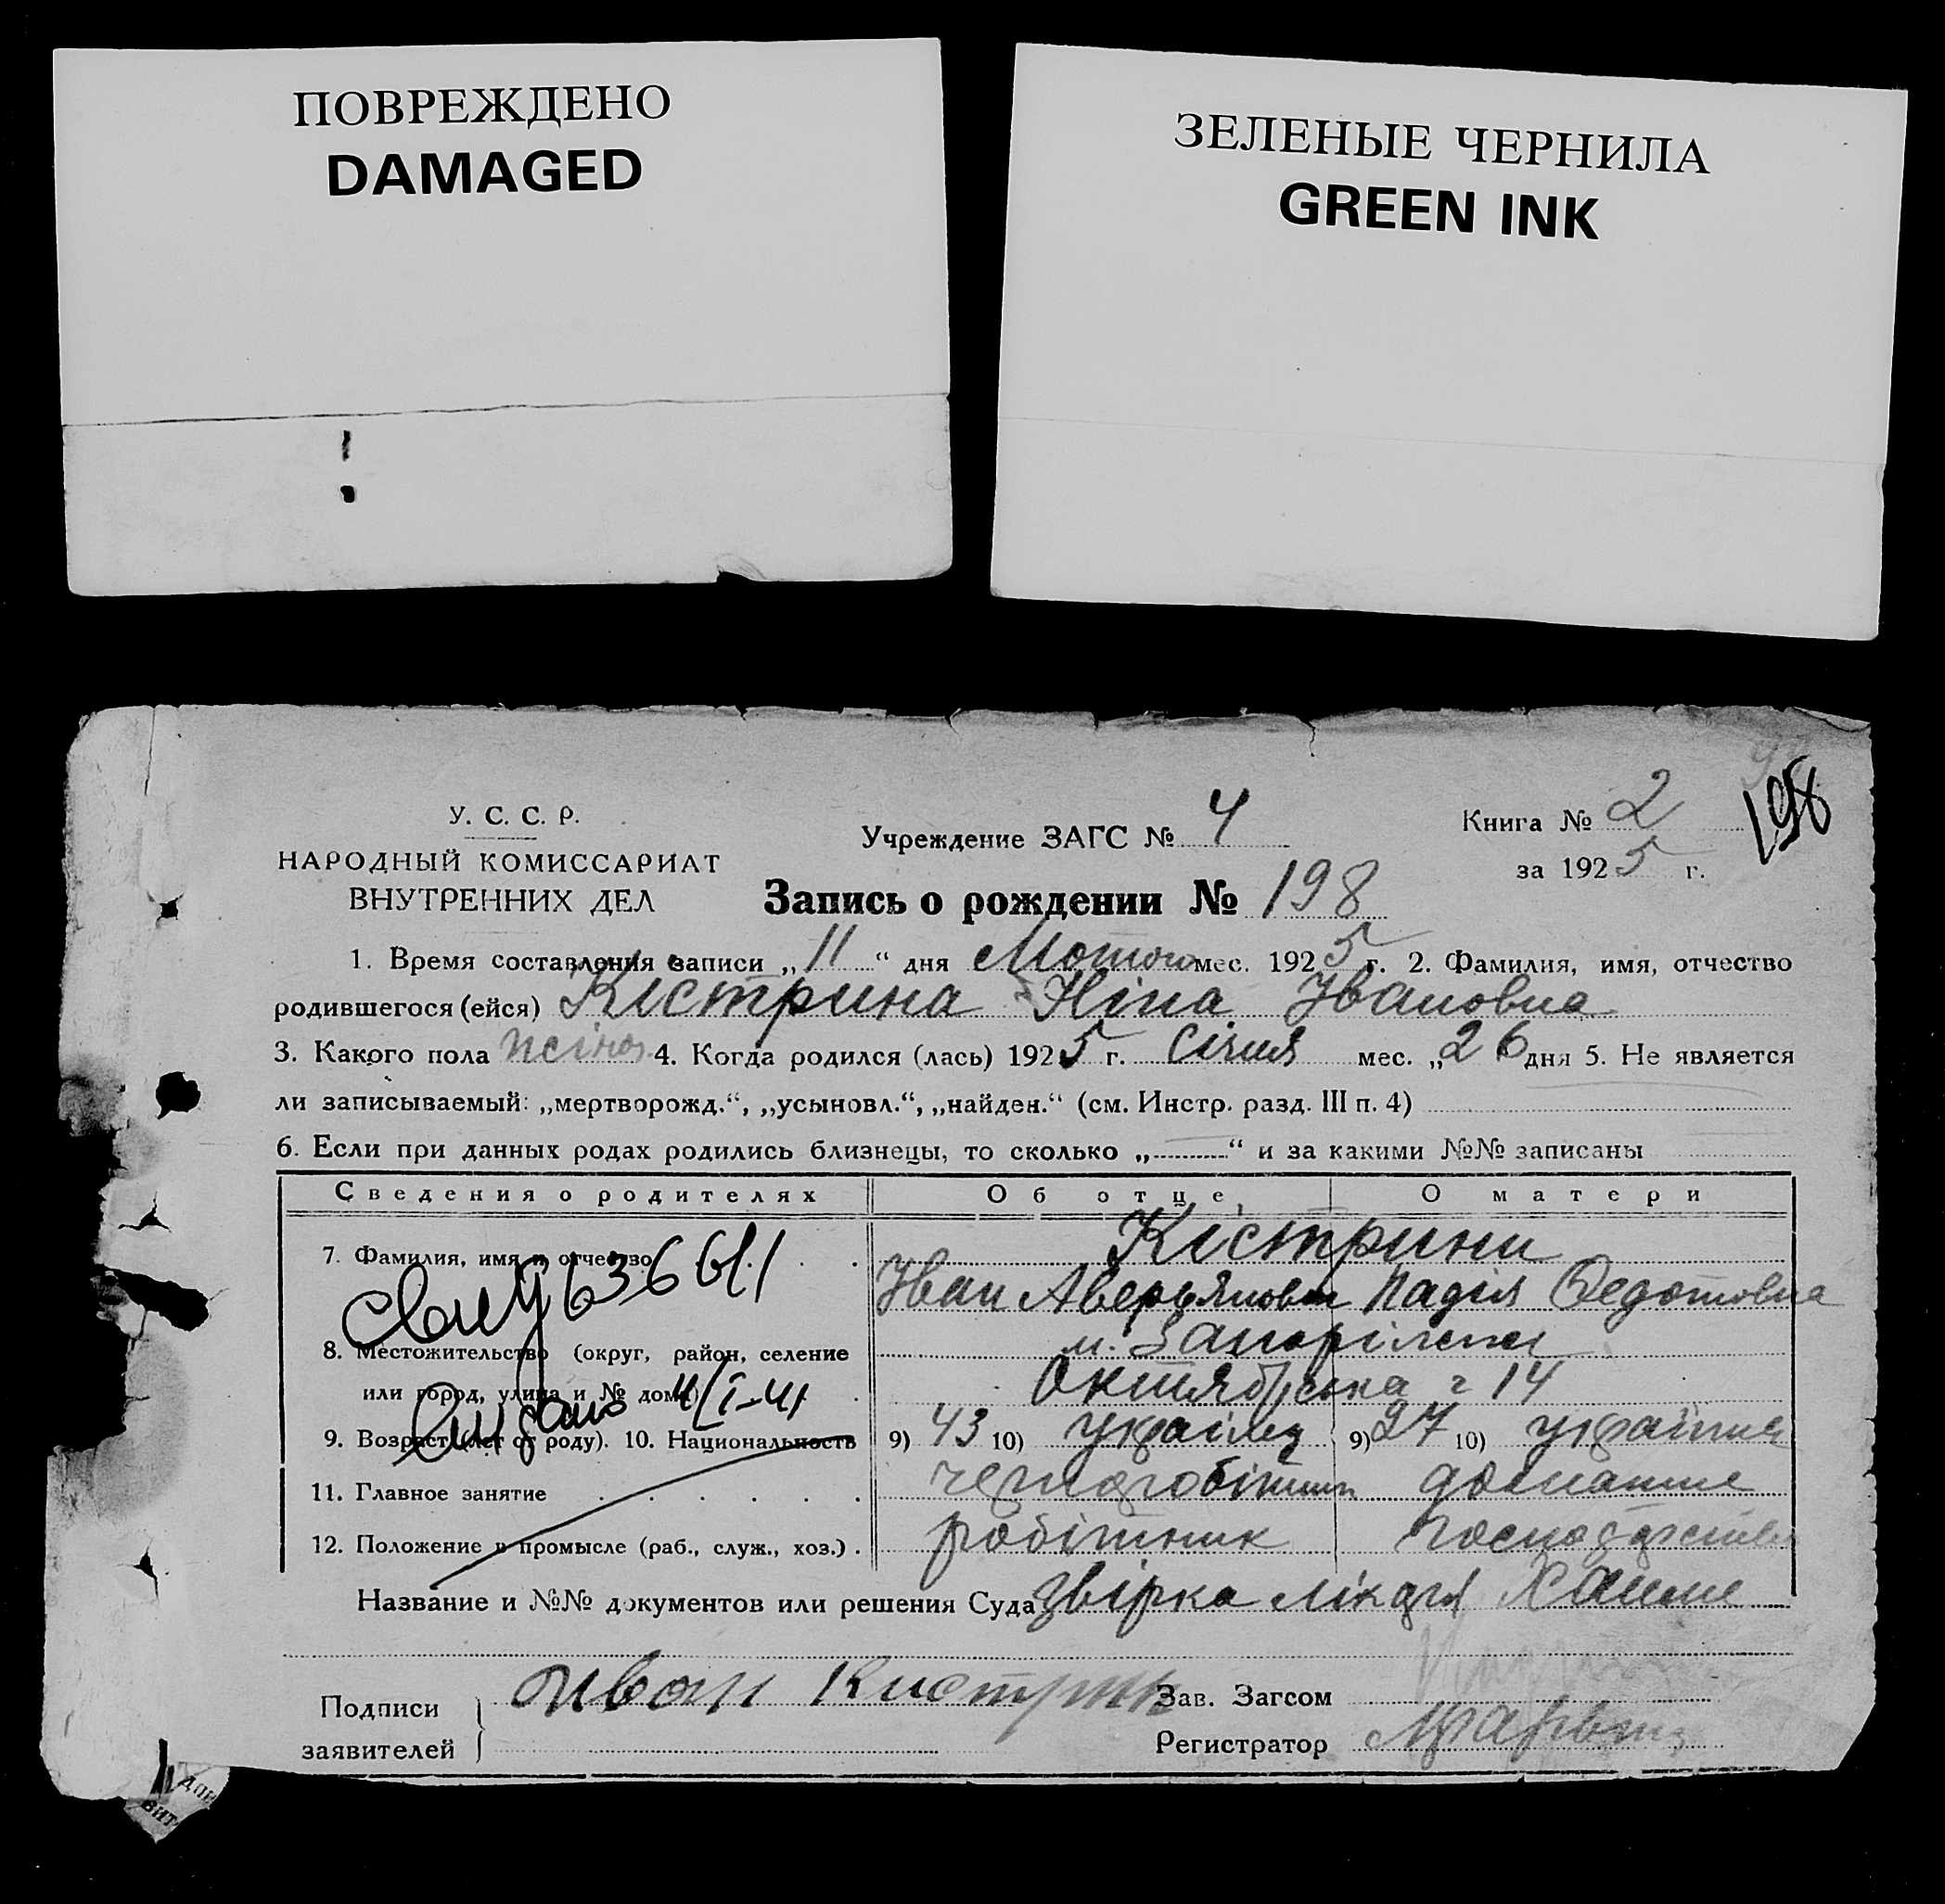 ПОВРЕЖДЕНО
DAMAGED
ЗЕЛЕНЫЕ ЧЕРНИЛА
GREEN INK
У. С. С. Р.
НАРОДНЫЙ КОМИССАРИАТ
ВНУТРЕННИХ ДЕЛ
Учреждение ЗАГС № 4
Книга № 2
198
за 1925 г.
Запись о рождении № 198
1. Время составления записи „11“ дня Лютого мес. 1925 г. 2. Фамилия, имя, отчество
родившегося (ейся) Кістрина Ніна Івановна
3. Какого пола жіноч. 4. Когда родился (лась) 1925 г. Січня мес. „26 дня 5. Не является
ли записываемый: „мертворожд.“, „усыновл.“, „найден.“ (см. Инстр. разд. III п. 4)
6. Если при данных родах родились близнецы, то сколько „ “ и за какими №№ записаны
Сведения о родителях Об отце О матери
Кістрини
7. Фамилия, имя и отчество
Іван Аверьянович Надія Федотовна
8. Местожительство (округ, район, селение м. Запоріжжя
или город, улица и № дома) Октябрська 14
9. Возраст (лет от роду). 10. Национальность 9) 43 10) українец 9) 27 10) українка
11. Главное занятие чернаробітник домашне
12. Положение в промысле (раб., служ., хоз.) робітник господарство
Название и №№ документов или решения Суда Звірка лікаря
Подписи заявителей Иван Кистрин
Зав. Загсом
Регистратор